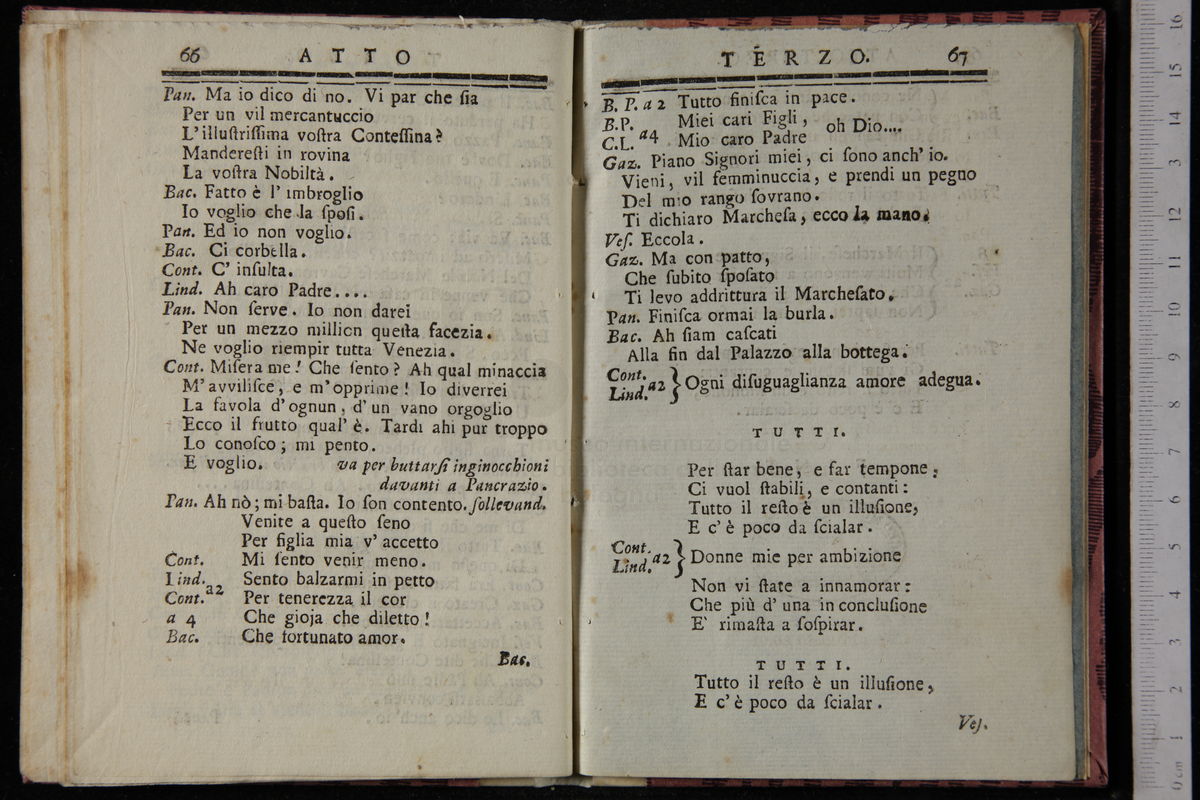 66 ATTO
Pan. Ma io dico di no. Vi par che ſia
Per un vil mercantuccio
L'illuſtriſſima voſtra Conteſſina?
Mandereſti in rovina
La voſtra Nobiltà.
Bac. Fatto è l'imbroglio
Io voglio che la ſpoſi.
Pan. Ed io non voglio.
Bac. Ci corbella.
Cont. C' inſulta.
Lind. Ah caro Padre....
Pan. Non ſerve. Io non darei
Per un mezzo millicn queſta facezia.
Ne voglio riempir tutta Venezia.
Cont. Miſera me! Che ſento? Ah qual minaccia
M'avviliſce, e m'opprime! Io diverrei
La favola d'ognun, d'un vano orgoglio
Ecco il frutto qual' è. Tardi ahi pur troppo
Lo conoſco; mi pento.
E voglio. va per buttarſi inginocchioni
davanti a Pancrazio.
Pan. Ah nò; mi baſta. Io ſon contento. ſollevand.
Venite a queſto ſeno
Per figlia mia v' accetto
Cont. Mi ſento venir meno.
Lind. Sento balzarmi in petto
Cont. a2 Per tenerezza il cor
a 4 Che gioja che diletto!
Bac. Che fortunato amor.
Bac.
TERZO. 67
B. P. a 2 Tutto finiſca in pace.
B.P. Miei cari Figli,
C.L. a4 Mio caro Padre oh Dio....
Gaz. Piano Signori miei, ci ſono anch' io.
Vieni, vil femminuccia, e prendi un pegno
Del mio rango ſovrano.
Ti dichiaro Marcheſa, ecco la mano.
Veſ. Eccola.
Gaz. Ma con patto,
Che ſubito ſpoſato
Ti levo addrittura il Marcheſato.
Pan. Finiſca ormai la burla.
Bac. Ah ſiam caſcati
Alla fin dal Palazzo alla bottega.
Cont.
Lind. a2 } Ogni diſuguaglianza amore adegua.
TUTTI.
Per ſtar bene, e far tempone;
Ci vuol ſtabili, e contanti:
Tutto il reſto è un illuſione,
E c' è poco da ſcialar.
Cont.
Lind. a2 } Donne mie per ambizione
Non vi ſtate a innamorar:
Che più d' una in concluſione
E' rimaſta a ſoſpirar.
TUTTI.
Tutto il reſto è un illuſione,
E c' è poco da ſcialar.
Veſ.
0 cm 1 2 3 4 5 6 7 8 9 10 11 12 13 14 15 16